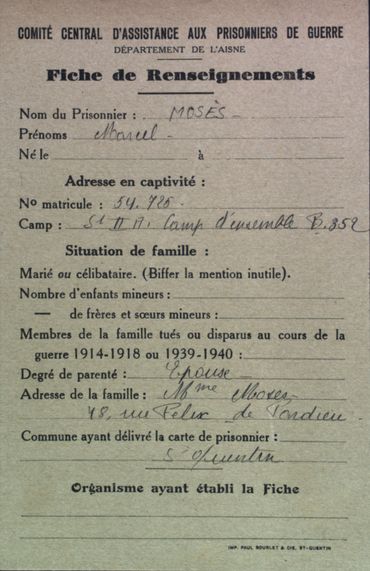 COMITÉ CENTRAL D'ASSISTANCE AUX PRISONNIERS DE GUERRE
DÉPARTEMENT DE L'AISNE
Fiche de Renseignements
Nom du Prisonnier : MOSÈS
Prénoms Marcel
Né le à
Adresse en captivité :
No matricule : 54.725
Camp : St II A. Camp d'ensemble B.352
Situation de famille :
Marié ou célibataire. (Biffer la mention inutile).
Nombre d'enfants mineurs :
— de frères et sœurs mineurs :
Membres de la famille tués ou disparus au cours de la
guerre 1914-1918 ou 1939-1940 :
Degré de parenté : Epouse
Adresse de la famille : Mme Moses
48, rue Félix de
Commune ayant délivré la carte de prisonnier :
St Quentin
Organisme ayant établi la Fiche
IMP. PAUL BOURLET & CIE, ST-QUENTIN